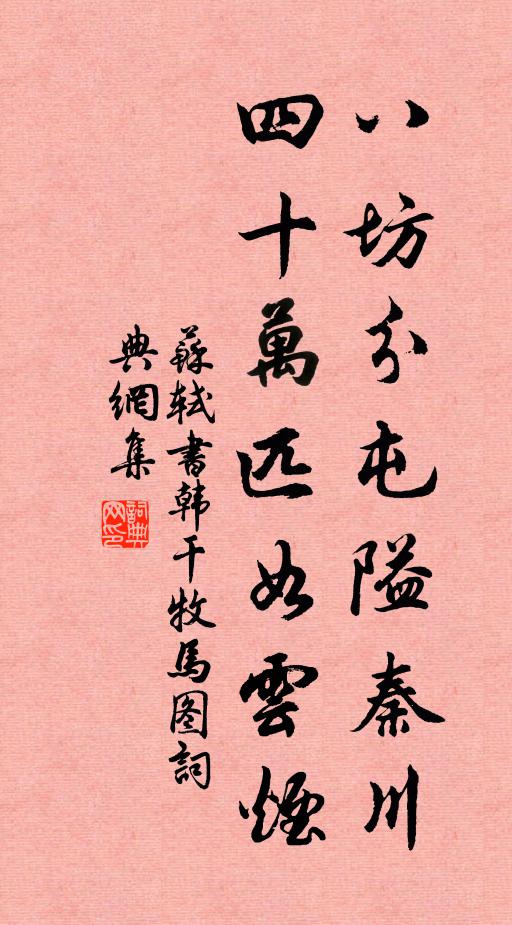 八坊分屯隘秦川
四十萬匹如雲煙
蘇軾書韩干牧馬图詞
典網集
詞典
网印